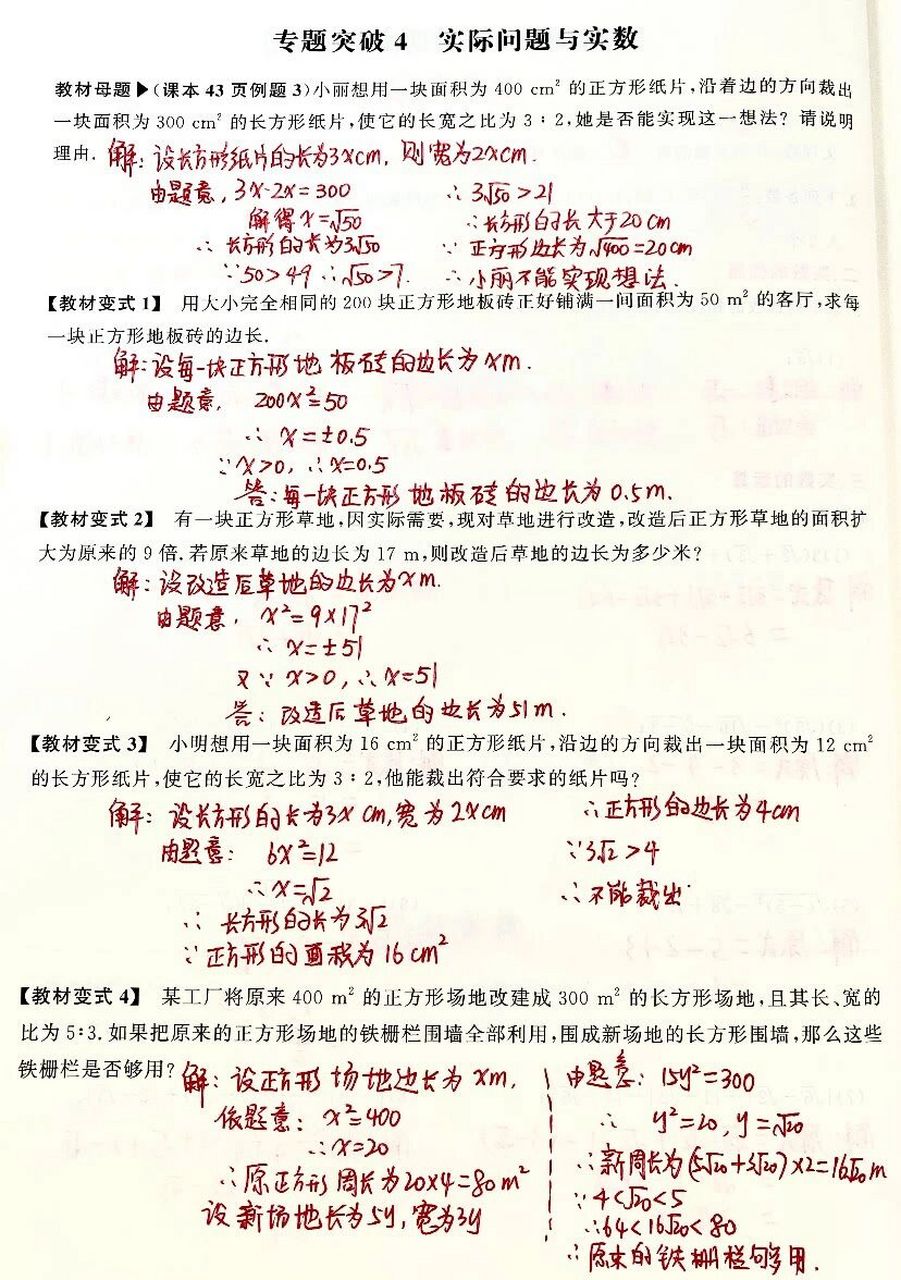 专题突破 4 实际问题与实数
教材母题▶(课本 43 页例题 3)小丽想用一块面积为 400 cm² 的正方形纸片,沿着边的方向裁出
一块面积为 300 cm² 的长方形纸片,使它的长宽之比为 3∶2,她是否能实现这一想法? 请说明
理由.
解: 设长方形纸片的长为3xcm, 则宽为2xcm.
由题意, 3x·2x=300
解得 x=√50
∴ 长方形的长为3√50
∵50>49 ∴√50>7.
∴ 3√50>21
∴长方形的长大于20cm
∵ 正方形边长为√400=20cm
∴小丽不能实现想法.
【教材变式 1】 用大小完全相同的 200 块正方形地板砖正好铺满一间面积为 50 m² 的客厅,求每
一块正方形地板砖的边长.
解:设每一块正方形地板砖的边长为xm.
由题意, 200x²=50
∴ x=±0.5
∵x>0, ∴x=0.5
答:每一块正方形地板砖的边长为0.5m.
【教材变式 2】 有一块正方形草地,因实际需要,现对草地进行改造,改造后正方形草地的面积扩
大为原来的 9 倍.若原来草地的边长为 17 m,则改造后草地的边长为多少米?
解:设改造后草地的边长为xm.
由题意, x²=9×17²
∴ x=±51
又∵ x>0, ∴x=51
答: 改造后草地的边长为51m.
【教材变式 3】 小明想用一块面积为 16 cm² 的正方形纸片,沿边的方向裁出一块面积为 12 cm²
的长方形纸片,使它的长宽之比为 3∶2,他能裁出符合要求的纸片吗?
解: 设长方形的长为3x cm,宽为2xcm
由题意: 6x²=12
∴x=√2
∴ 长方形的长为3√2
∵正方形的面积为16cm²
∴正方形的边长为4cm
∵3√2>4
∴不能裁出
【教材变式 4】 某工厂将原来 400 m² 的正方形场地改建成 300 m² 的长方形场地,且其长、宽的
比为 5∶3.如果把原来的正方形场地的铁栅栏围墙全部利用,围成新场地的长方形围墙,那么这些
铁栅栏是否够用?
解: 设正方形场地边长为xm.
依题意: x²=400
∴x=20
∴原正方形周长为20×4=80m²
设新场地长为5y,宽为3y
由题意: 15y²=300
∴ y²=20, y=√20
∴新周长为(5√20+3√20)×2=16√20m
∵4<√20<5
∴64<16√20<80
∴原来的铁栅栏够用.